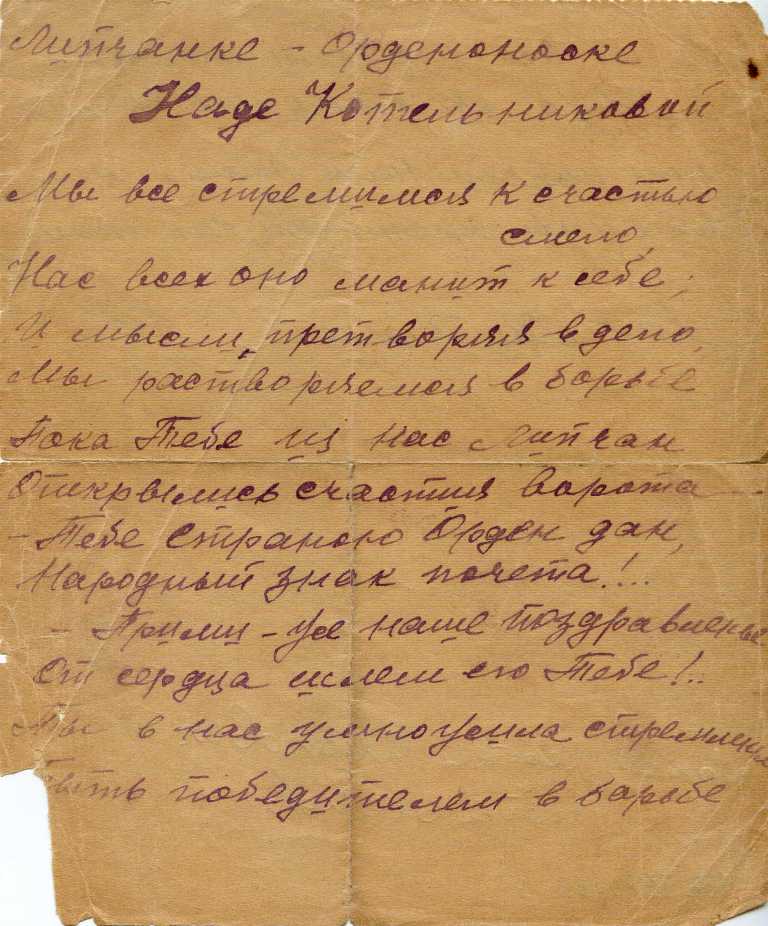 Липчанке - Орденоноске
Наде Котельниковой
Мы все стремимся к счастью
смело,
Нас всех оно манит к себе;
И мысли, претворяя в дело,
Мы растворяемся в борьбе
Пока Тебе из нас Липчан
Открылись счастия ворота —
- Тебе Страною Орден дан,
Народный знак почета!..
- Прими-же наше поздравленье
От сердца шлем его Тебе!..
Ты в нас умножила стремленья
Быть победителем в борьбе